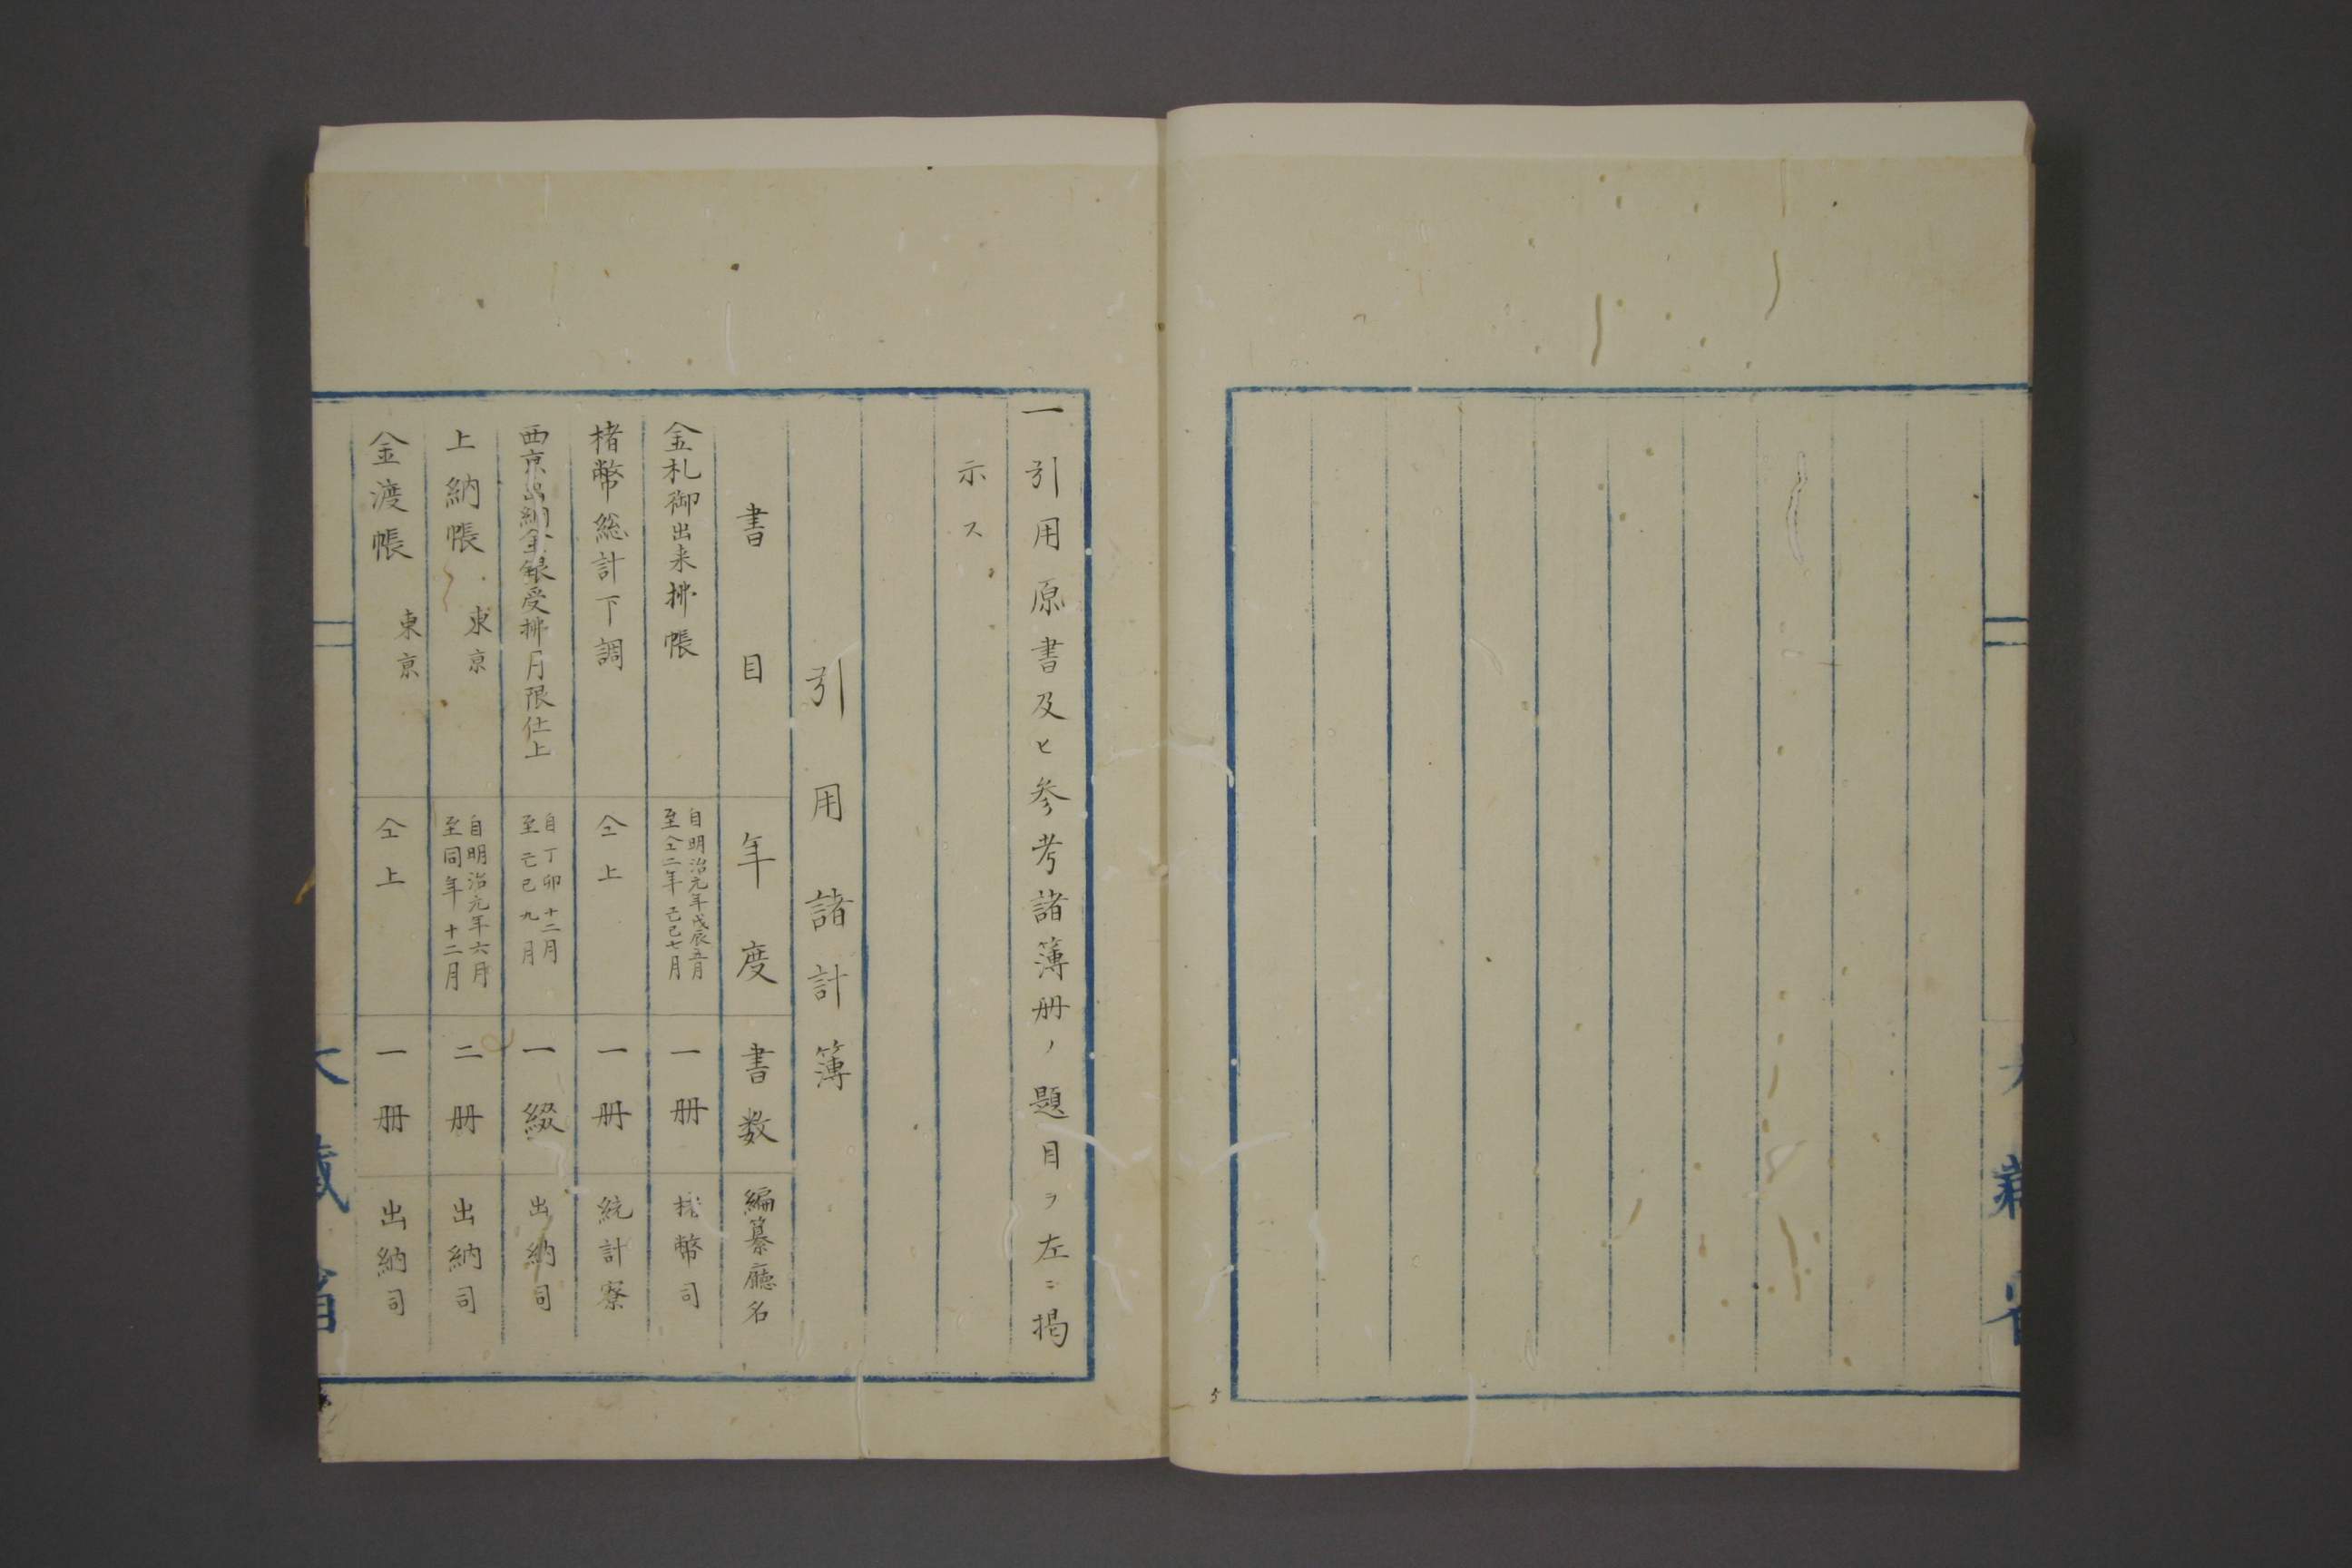 一引用原書及ヒ参考諸簿册ノ題目ヲ左ニ掲
示ス
引用諸計簿
書目 年度 書数 編纂廳名
金札御出来拂帳 自明治元年戊辰五月 至仝二年己巳七月 一册 幣司
楮幣総計下調 仝上 一册 統計寮
西京出納金銀受拂月限仕上 自丁卯十二月 至己巳九月 一綴 出納司
上納帳 東京 自明治元年六月 至同年十二月 二册 出納司
金渡帳 東京 仝上 一册 出納司
大蔵省